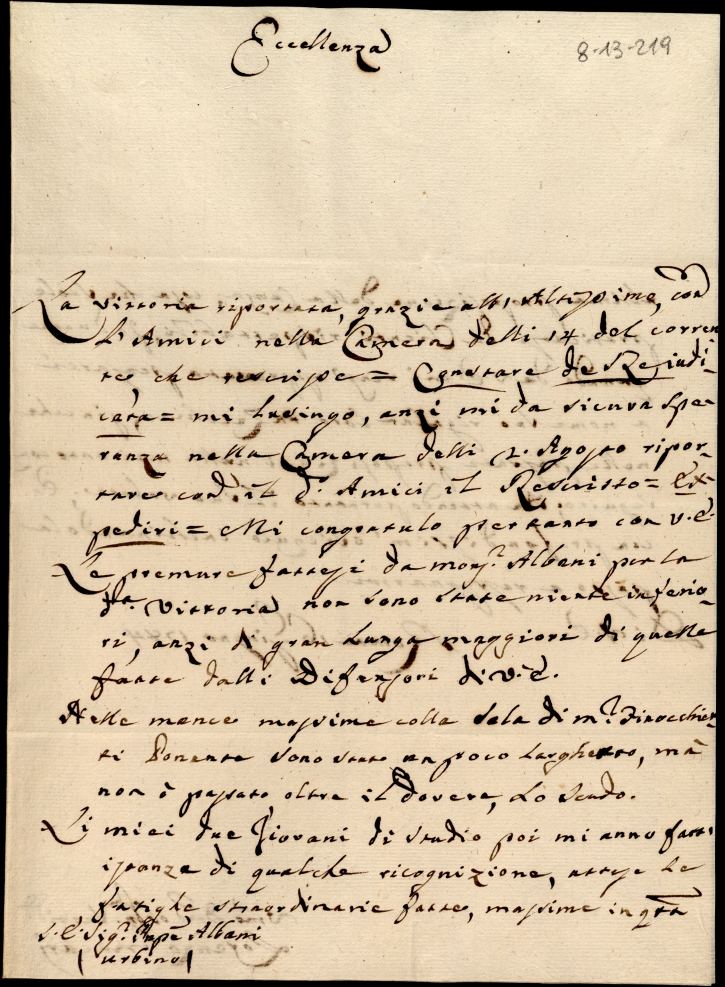 Eccellenza
8-13-219
La vittoria riportata, grazie all'Altissimo, con
L'Amici nella Camera delli 14 del corren
te, che rescripse = Constare de Rejudi-
cata = mi lusingo, anzi mi da sicura spe-
ranza nella Camera delli 2. Agosto ripor-
tare con il d.º Amici il Rescritto = Ex-
pediri = Mi congratulo pertanto con V.E.
Le premure fattesi da monsʳ Albani per la
dᵗᵃ Vittoria non sono state niente inferio-
ri, anzi di gran lunga maggiori di quelle
fatte dalli Difensori di V.E.
Nelle mance massime colla Sala di mʳ Finocchiet
ti Ponente sono stato un poco larghetto, mà
non ò passato oltre il dovere, Lo Scudo.
Li miei due Giovani di studio poi mi anno fatt'
istanza di qualche ricognizione, attese le
fatighe straordinarie fatte, massime in qᵗᵃ
S. E. Sigʳ Pnpe Albani
(Urbino)